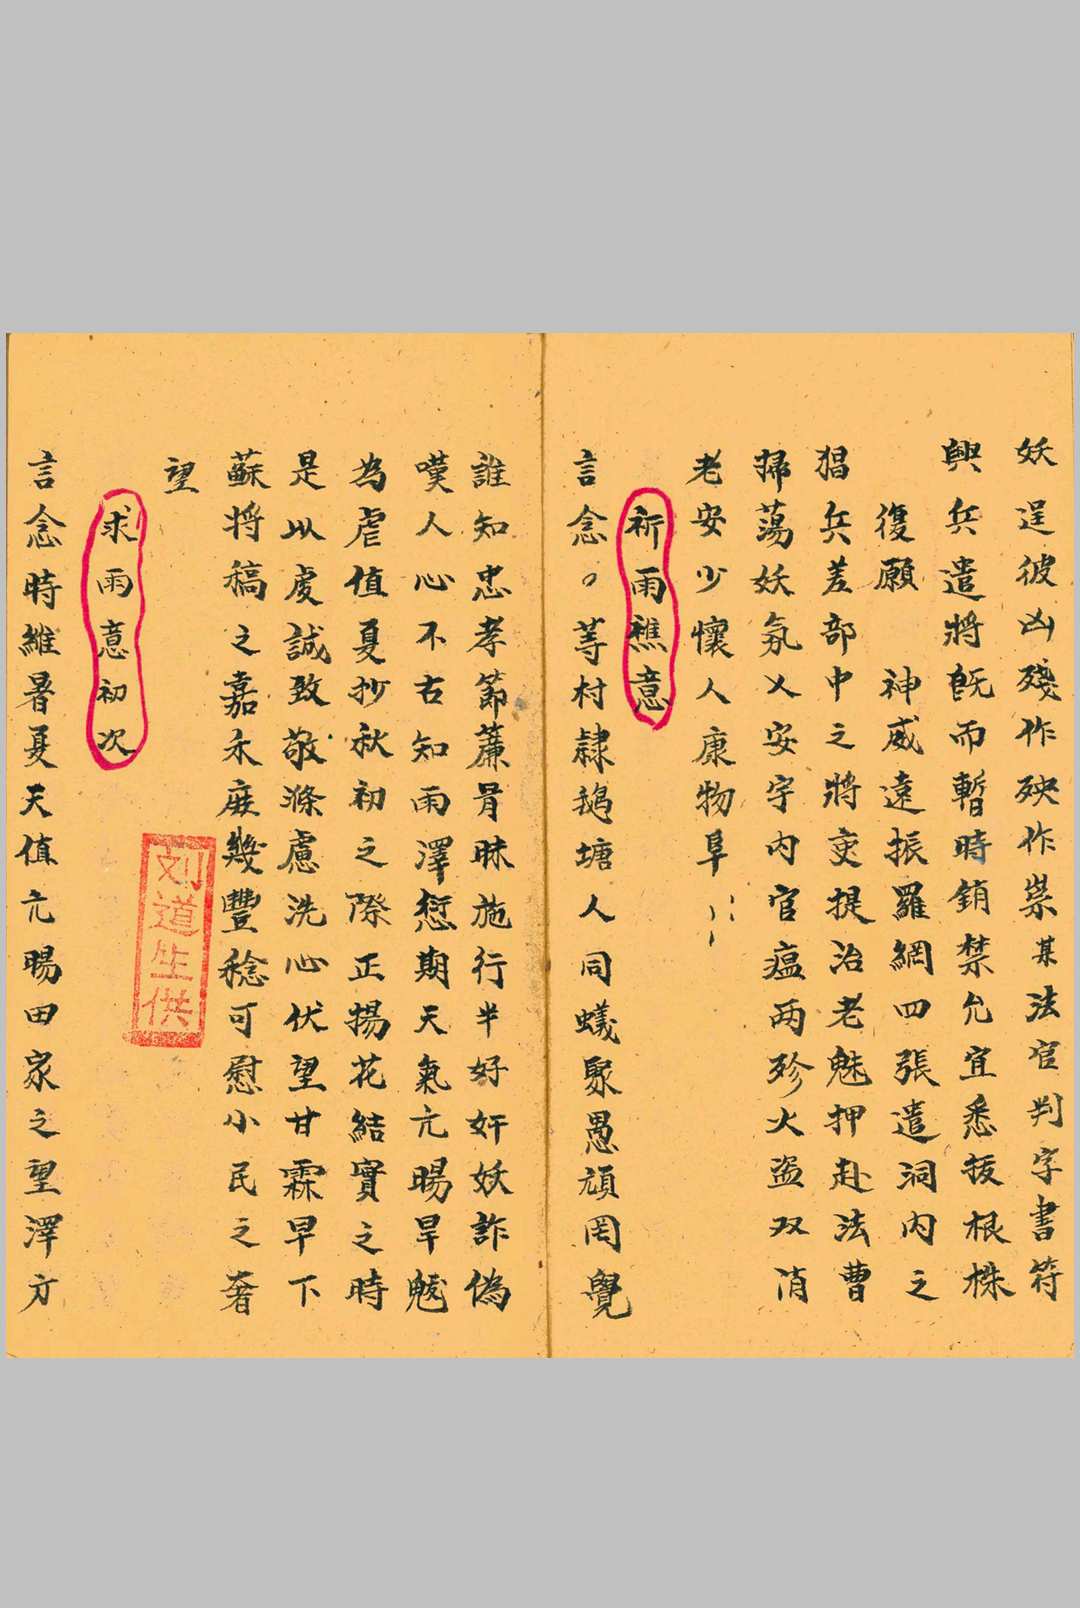 妖逞彼凶殘作殃作祟某法官判字書符
興兵遣將旣而暫時銷禁允宜悉拔根株
復願　神威遠振羅網四張遣洞内之
猖兵差部中之將吏提治老魅押赴法曹
掃蕩妖氛乂安宇内官瘟兩殄火盗双消
老安少懷人康物阜
祈雨醮意
言念○等村隷鵝塘人同蟻聚愚頑罔覺
誰知忠孝節薦骨昧施行半好奸妖詐偽
嘆人心不古知雨澤愆期天氣亢暘旱魃
為虐值夏抄秋初之際正揚花結實之時
是以虔誠致敬滌慮洗心伏望甘霖早下
蘇将稿之嘉禾庶幾豐稔可慰小民之奢
望
刘道生供
求雨意初次
言念時維暑夏天值亢暘田家之望澤方